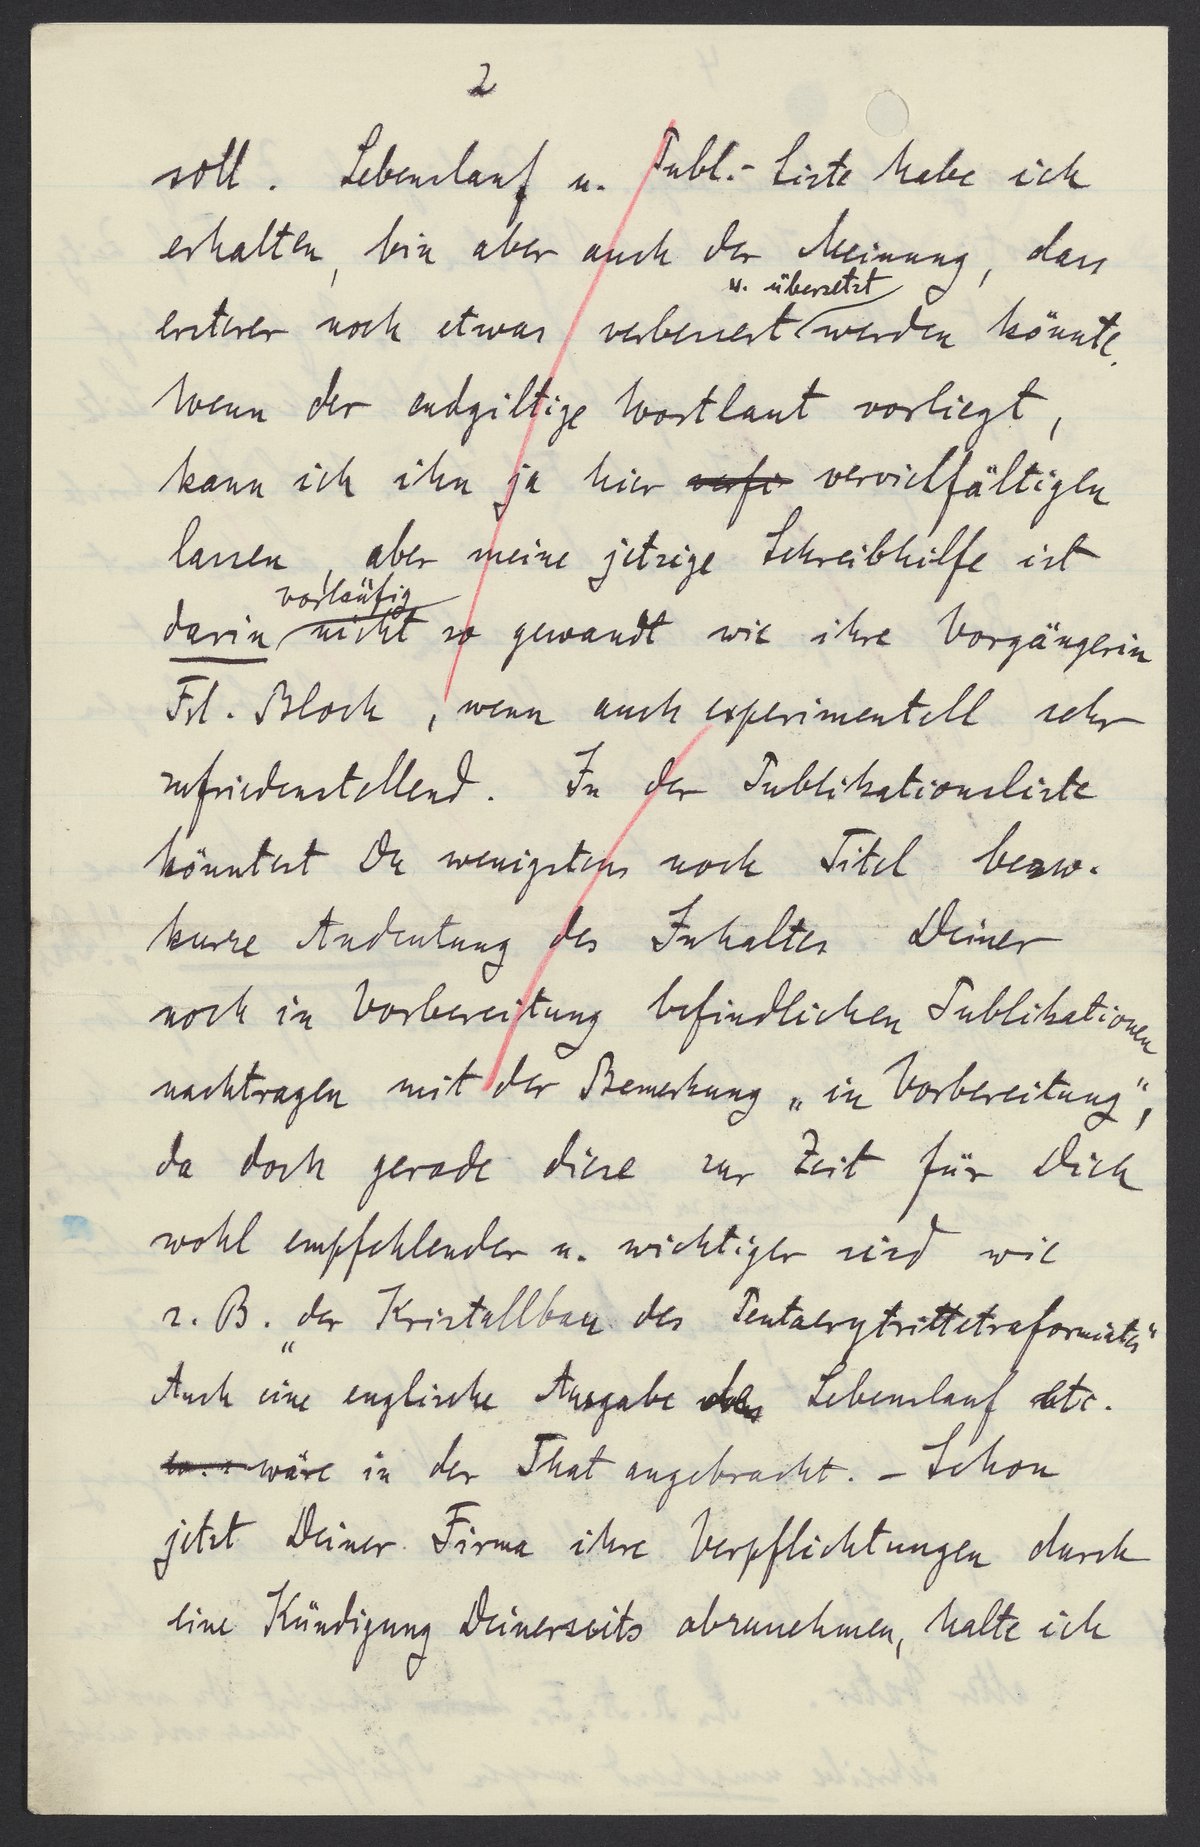 2
soll. Lebenslauf u. Publ.- Liste habe ich
erhalten, bin aber auch der Meinung, dass
u. übersetzt
ersterer noch etwas verbessert werden könnte.
Wenn der endgiltige Wortlaut vorliegt,
kann ich ihn ja hier verfi vervielfältigen
lassen, aber meine jetzige Schreibhilfe ist
vorläufig
darin nicht so gewandt wie ihre Vorgängerin
Frl. Bloch, wenn auch experimentell sehr
zufriedenstellend. In der Publikationsliste
könntest Du wenigstens noch Titel bezw.
kurze Andeutung des Inhaltes Deiner
noch in Vorbereitung befindlichen Publikationen
nachtragen mit der Bemerkung „in Vorbereitung",
da doch gerade diese zur Zeit für Dich
wohl empfehlender u. wichtiger sind wie
z. B. „der Kristallbau des Pentaerytrittetraformiates"
Auch eine englische Ausgabe des Lebenslauf etc.
wäre in der That angebracht. – Schon
jetzt Deiner Firma ihre Verpflichtungen durch
eine Kündigung Deinerseits abzunehmen, halte ich